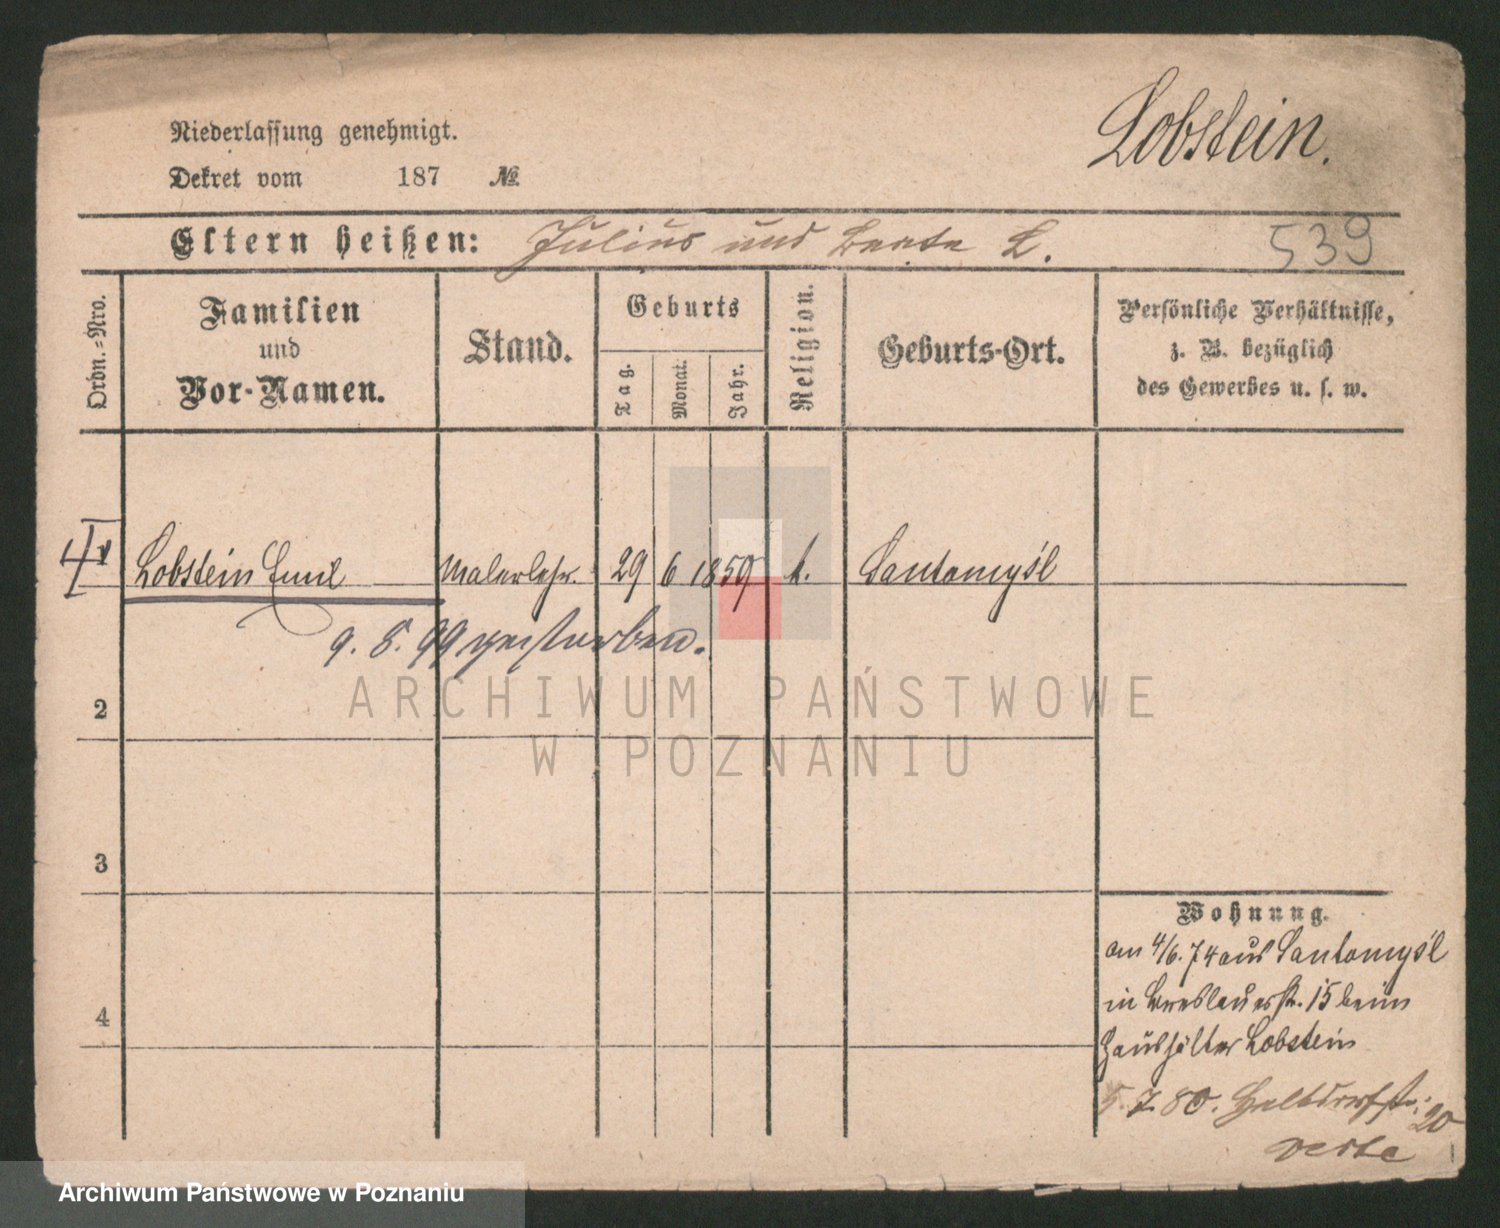 Lobstein.
Niederlassung genehmigt.
Dekret vom 187 №
Eltern heißen: Julius und Beate L.
539
Ordn.-Nro.
Familien
und
Vor-Namen.
Stand.
Geburts
Tag.
Monat.
Jahr.
Religion.
Geburts-Ort.
Persönliche Verhältnisse,
z. B. bezüglich
des Gewerbes u. s. w.
Lobstein Emil Malerlehr. 29 6 1859 k. Santomyśl
9. 8. 99 gestorben.
ARCHIWUM PAŃSTWOWE
W POZNANIU
2
3
4
Wohnung.
am 4/6. 74 aus Santomyśl
in Breslauerstr. 15 beim
Haushälter Lobstein
5. 7. 80. Halbdorfstr. 20
verte
Archiwum Państwowe w Poznaniu